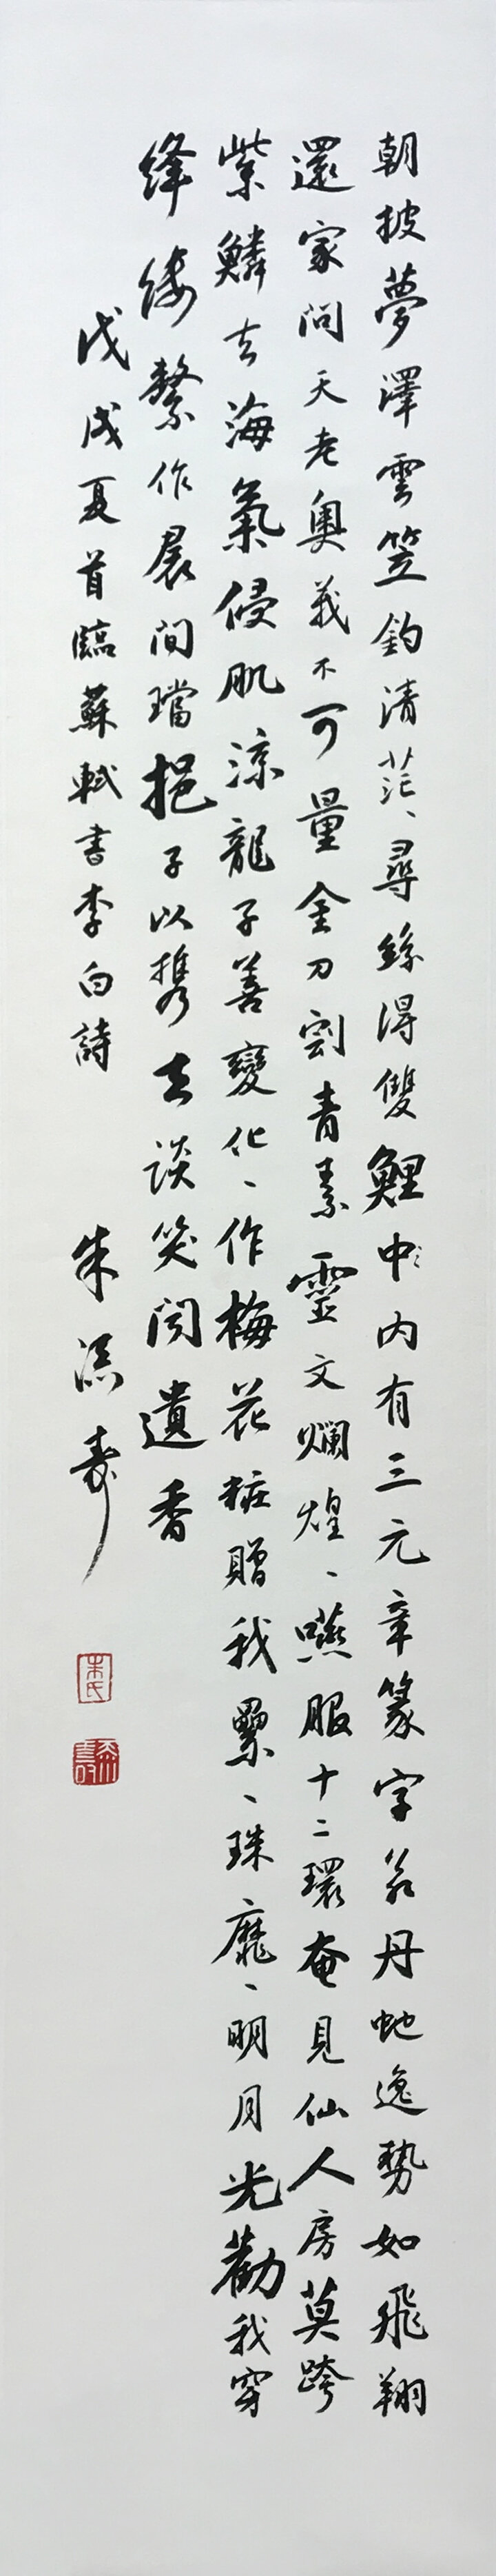 朝披夢澤雲笠釣清茫、尋絲得雙鯉中〻內有三元章篆字若丹虵逸勢如飛翔
還家問天老奧義不可量金刀割青素靈文爛煌、嚥服十二環奄見仙人房莫跨
紫鱗去海氣侵肌涼龍子善變化、作梅花粧贈我纍、珠靡、明月光勸我穿
絳縷繫作裙間璫挹子以攜去談笑聞遺香
戊戌夏首臨蘇軾書李白詩
朱 壽
朱氏